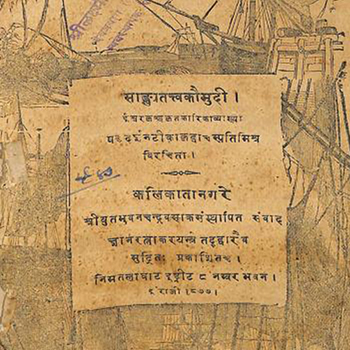 साङ्ख्यतत्त्वकौमुदी ।
ईश्वरकृष्णकृतकारिकाव्याख्या
षड्दर्शनटीकाकृद्वाचस्पतिमिश्र
विरचिता ।
कलिकातानगरे
श्रीयुतभुवनचन्द्रवसाकसंस्थापित संवाद
ज्ञानरत्नाकरयन्त्रे
मुद्रिता प्रकाशितच ।
निमतलाघाट ष्ट्रीट ८ नम्बर भवन ।